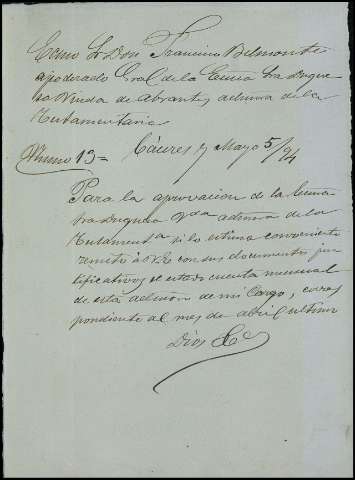 Excmo Sr Don Francisco Belmonte
apoderado Gral de la Excma Sra Duque
sa Viuda de Abrantes admra de la
Testamentaria
Numo 13 = Cáceres y Mayo 5/94
Para la aprovacion de la Excma
Sra Duquesa Vda admra de la
Testamenta si lo estima conveniente
remito à V.E. con sus documentos jus
tificativos el estado cuenta mensual
de esta admon de mi cargo, corres
pondiente al mes de abril ultimo
Dios &ª